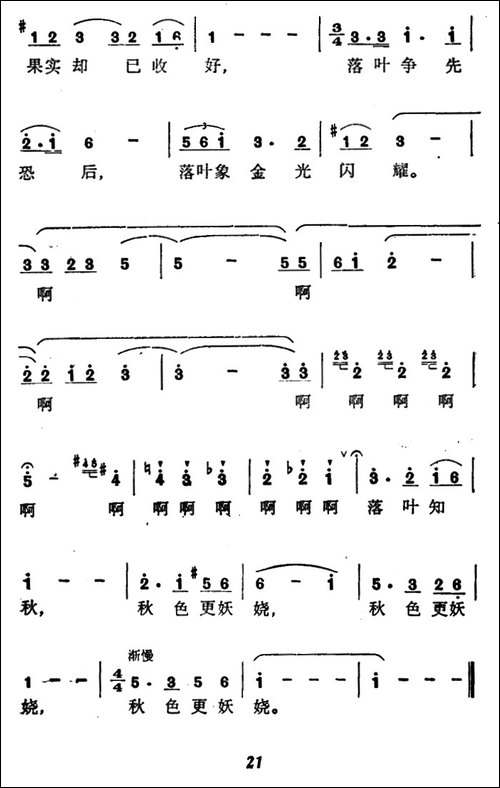 #1 2 3 3 2 1 6 | 1 - - - | 3/4 3·3 i· i |
果实却 已收 好， 落叶争 先
2·i 6 - | 5 6 i 3· 2 | #1 2 3 - |
恐 后， 落叶象 金 光 闪 耀。
3 3 2 3 5 | 5 - 5 5 | 6 i 2 - |
啊 啊
2 2 i 2 3 | 3 - 3 3 | 2 3 2 2 3 2 2 3 2 |
啊 啊 啊 啊 啊
5 - #4 3 #4 | ♮4 3 ♭3 | 2 ♭2 i | 3· 2 i 6 |
啊 啊 啊啊 啊 啊 啊啊 落 叶 知
i - - | 2· i #5 6 | 6 - i | 5· 3 2 6 |
秋， 秋 色 更妖 娆， 秋 色 更妖
渐慢
1 - - | 4/4 5· 3 5 6 | i - - - | i - - - ‖
娆， 秋 色 更 妖 娆。
21